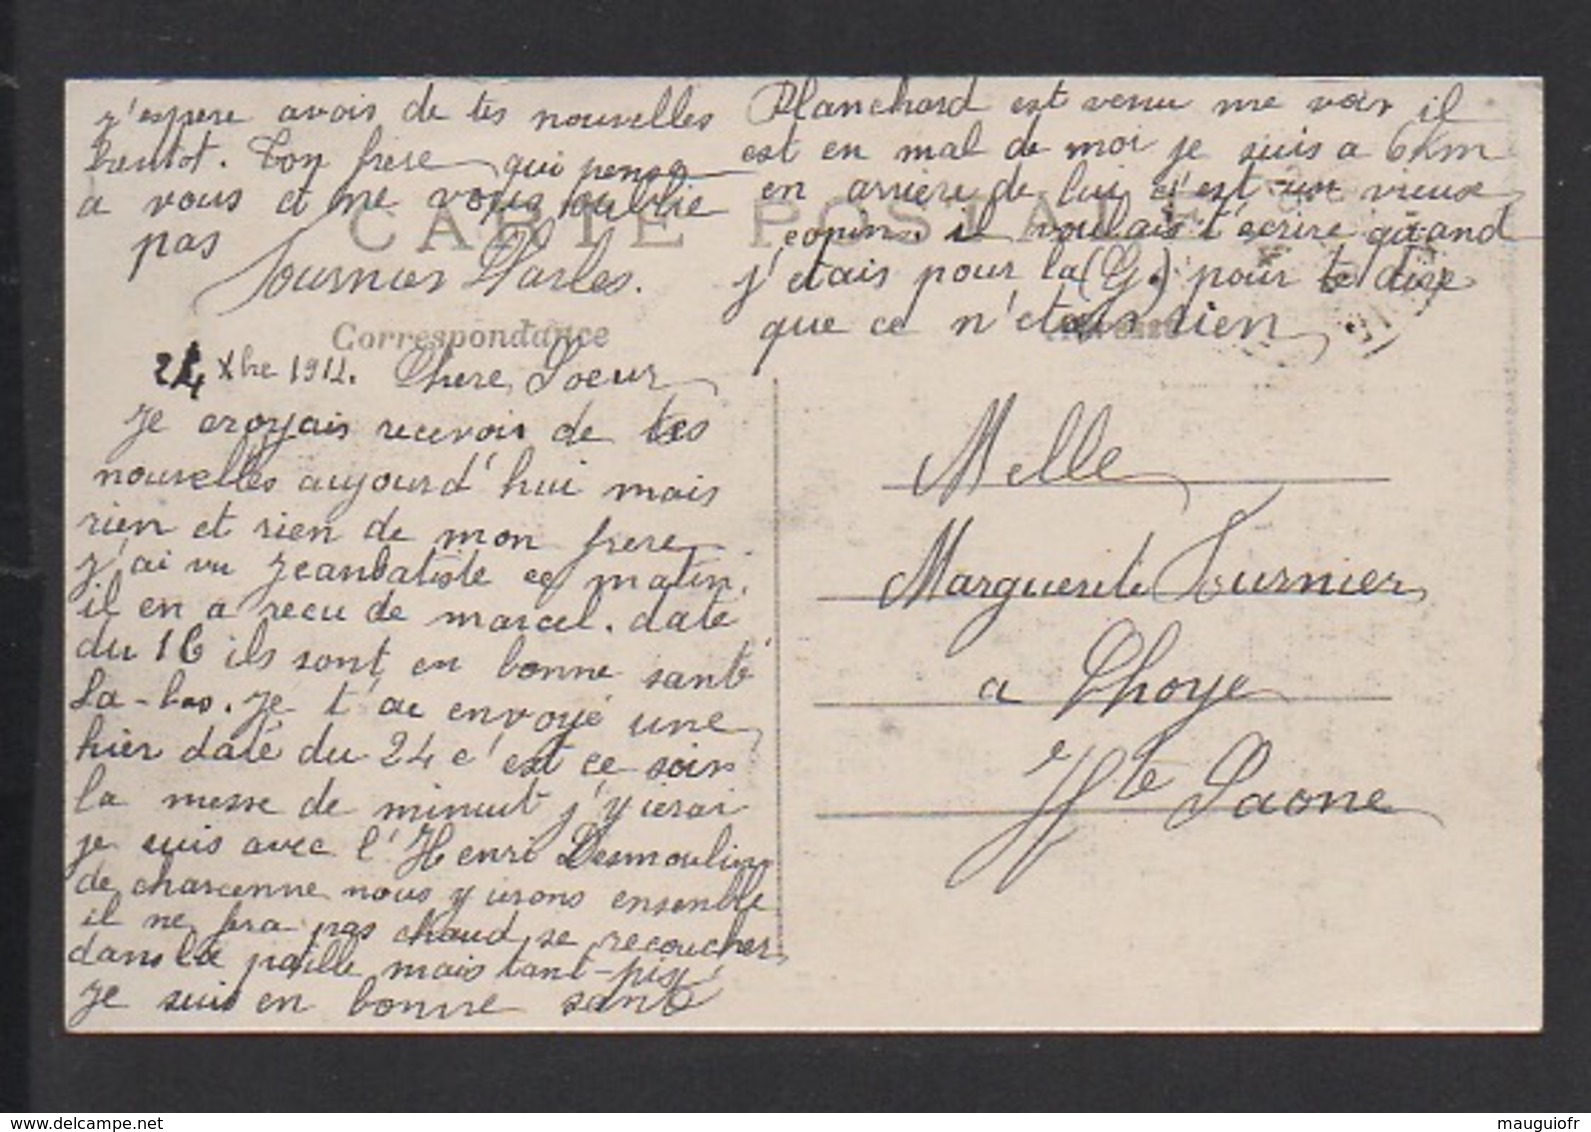 24 Xbre 1914. Chere Soeur
Je croyais recevoir de tes
nouvelles aujourd'hui mais
rien et rien de mon frere
J'ai vu Jeanbatiste ce matin.
il en a recu de marcel. daté
du 16 ils sont en bonne santé
La-bas. Je t'ai envoyé une
hier daté du 24 c'est ce soir
la messe de minuit j'y ierai
je suis avec l'Henri Desmoulins
de charcenne nous y irons ensemble
il ne fera pas chaud se recoucher
dans la paille mais tant-pis
Je suis en bonne santé
j'espere avoir de tes nouvelles
bientot. Ton frere qui pense
a vous et ne vous oublie
pas
Fournier Charles.
Planchard est venu me voir il
est en mal de moi je suis a 6Km
en arriere de lui c'est un vieux
copin. il voulais t'ecrire quand
j'etais pour la (G.) pour te dire
que ce n'etais rien
CARTE POSTALE
Correspondance
Melle
Marguerite Fournier
a Choye
Hte Saone
www.delcampe.net
mauguiofr